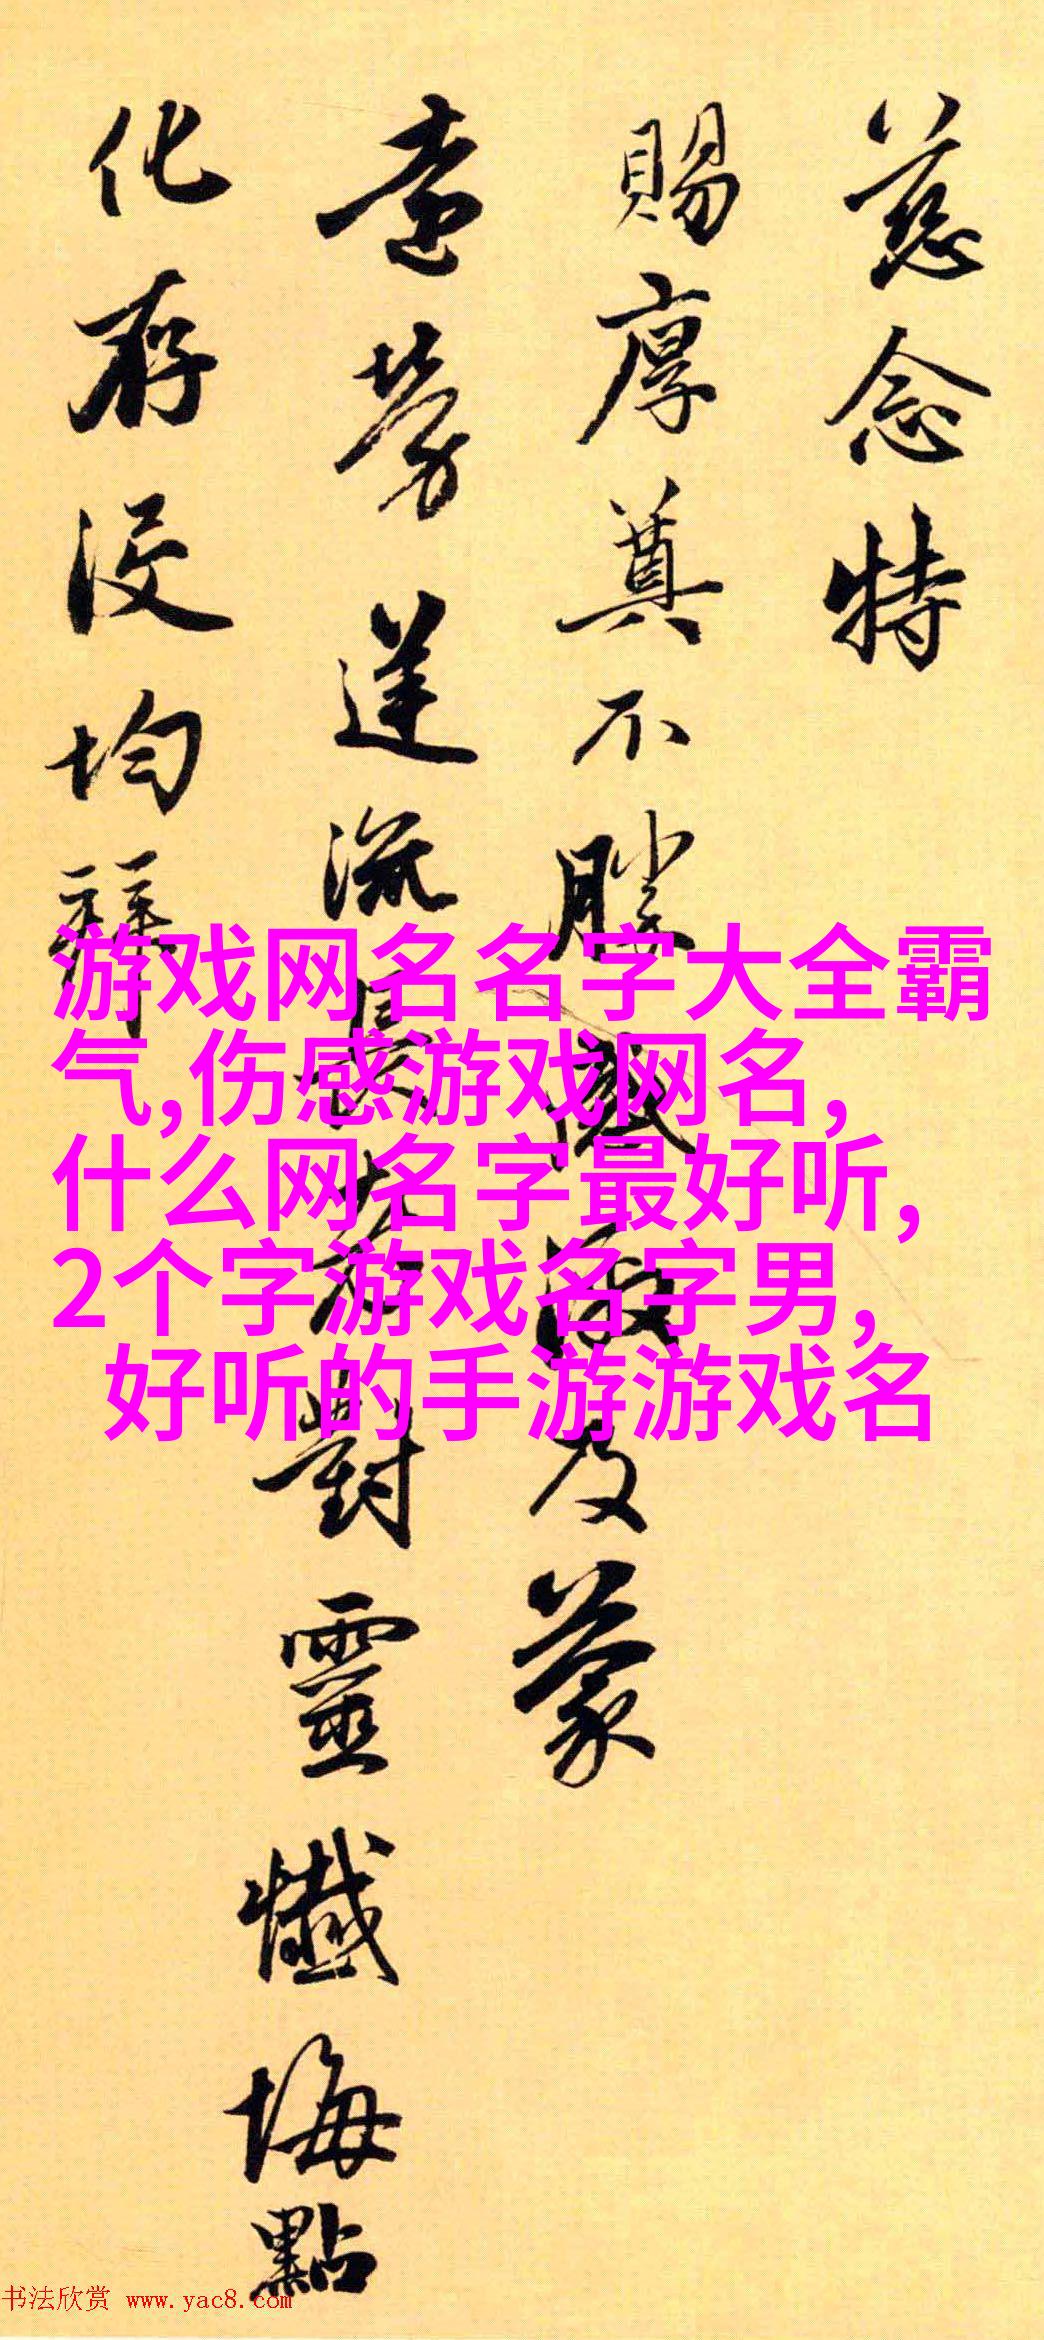 慈念特
賜厚奠不勝感激及蒙
遠勞運流長大衣對靈懺悔點
化存没均
游戏网名名字大全霸
气,伤感游戏网名,
什么网名字最好听,
2个字游戏名字男,
好听的手游游戏名
书法欣赏 www.yac8.com